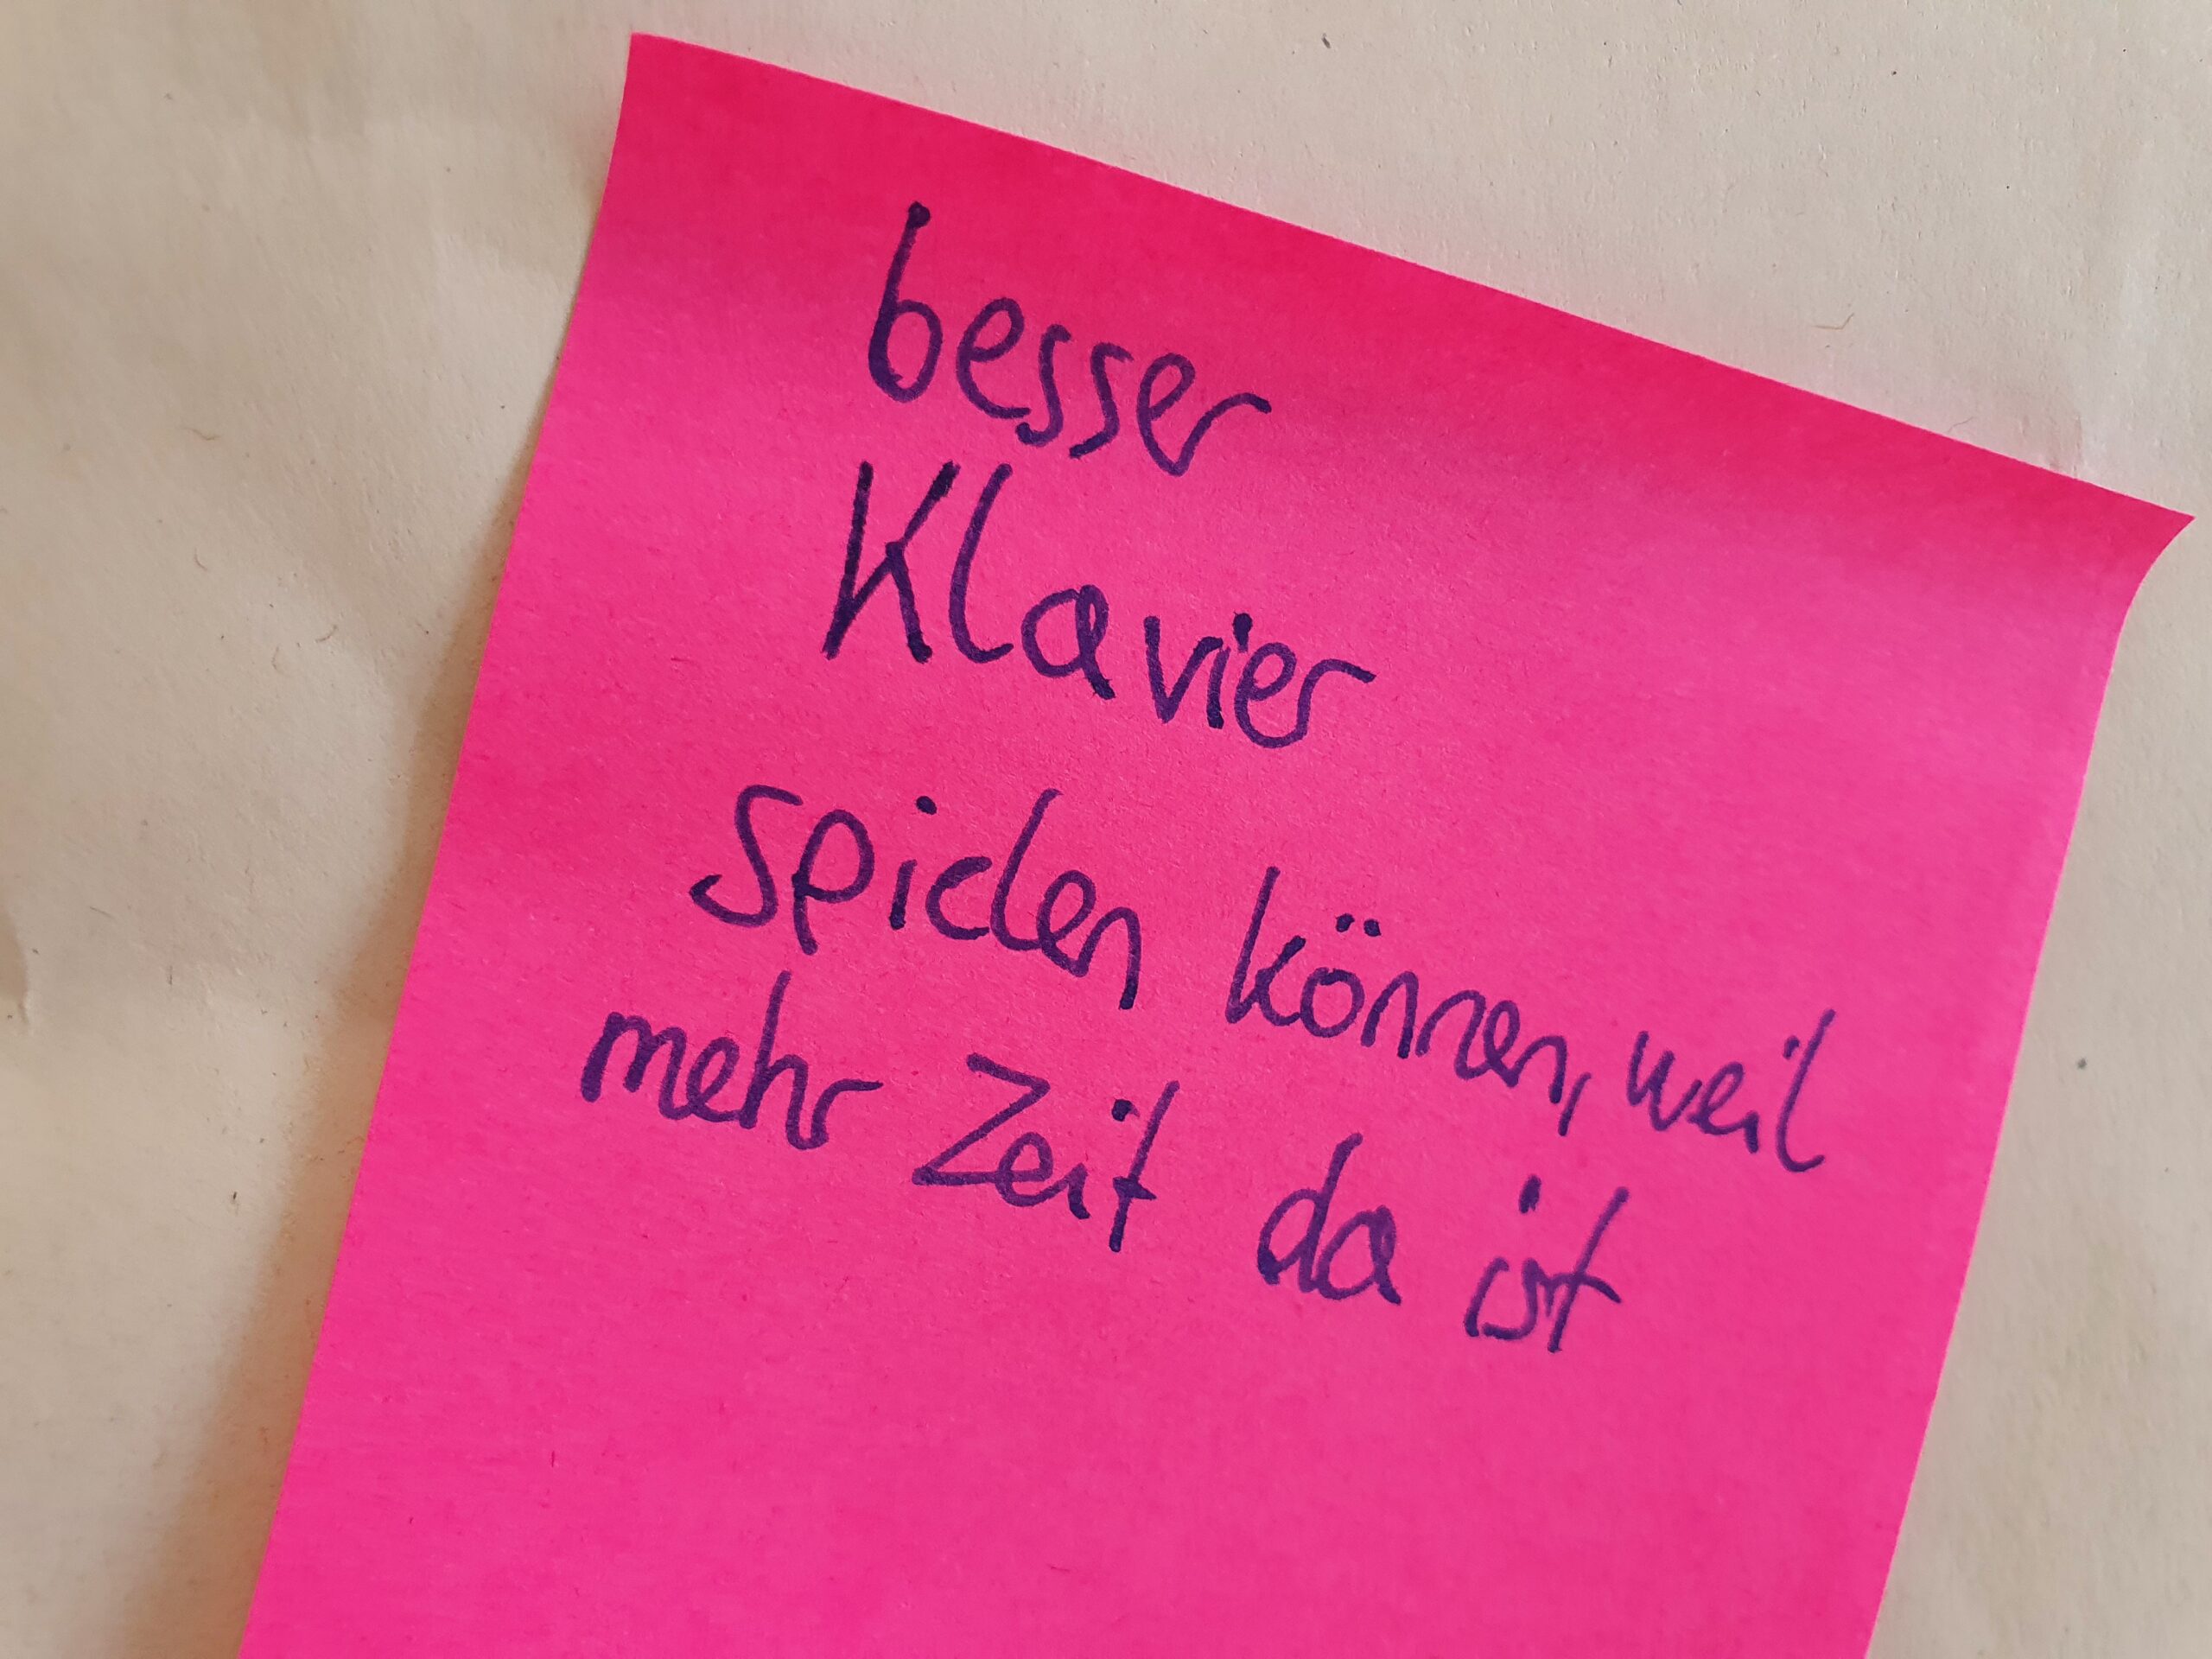 besser
Klavier
spielen können, weil
mehr Zeit da ist